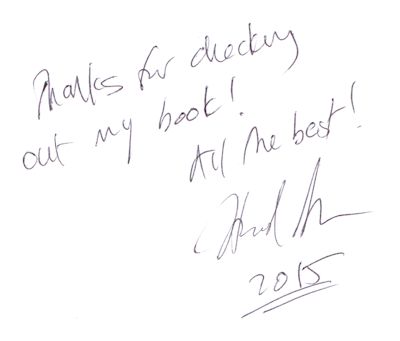 Thanks for checking
out my book!
All the best!
2015